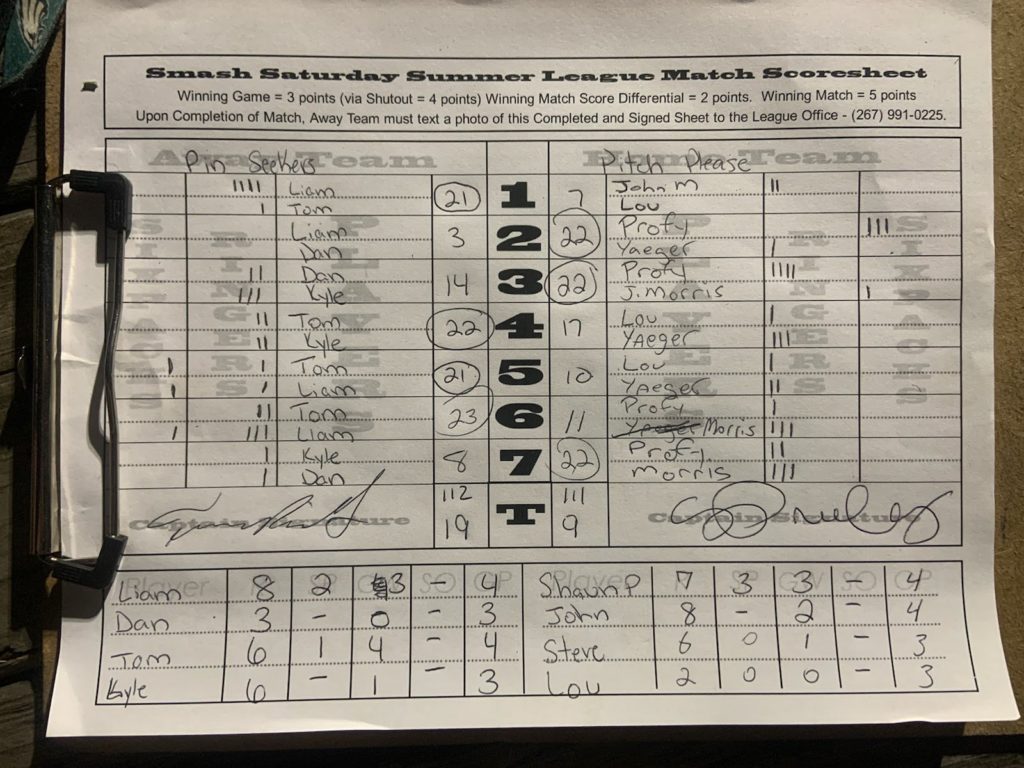 Smash Saturday Summer League Match Scoresheet
Winning Game = 3 points (via Shutout = 4 points) Winning Match Score Differential = 2 points. Winning Match = 5 points
Upon Completion of Match, Away Team must text a photo of this Completed and Signed Sheet to the League Office - (267) 991-0225.
Away Team Home Team
Pin Seekers Pitch Please
SIXPACKS RINGERS PLAYERS PLAYERS RINGERS SIXPACKS
IIII Liam 21 1 7 John M II
I Tom Lou
Liam 3 2 22 Profy III
Dan Yaeger I
II Dan 14 3 22 Profy IIII
III Kyle J. Morris I
II Tom 22 4 17 Lou I
II Kyle YAeger III
I I Tom 21 5 10 Lou I
I I Liam YAeger II
II Tom 23 6 11 Profy I
I III Liam Morris III
I Kyle 8 7 22 Profy II
I Dan Morris III
112 T 111
19 9
Captain Signature Captain Signature
Player SP GW SO GP Player SP GW SO GP
Liam 8 2 3 - 4 Shaun P 7 3 3 - 4
Dan 3 - 0 - 3 John 8 - 2 - 4
Tom 6 1 4 - 4 Steve 6 0 1 - 3
Kyle 6 - 1 - 3 Lou 2 0 0 - 3